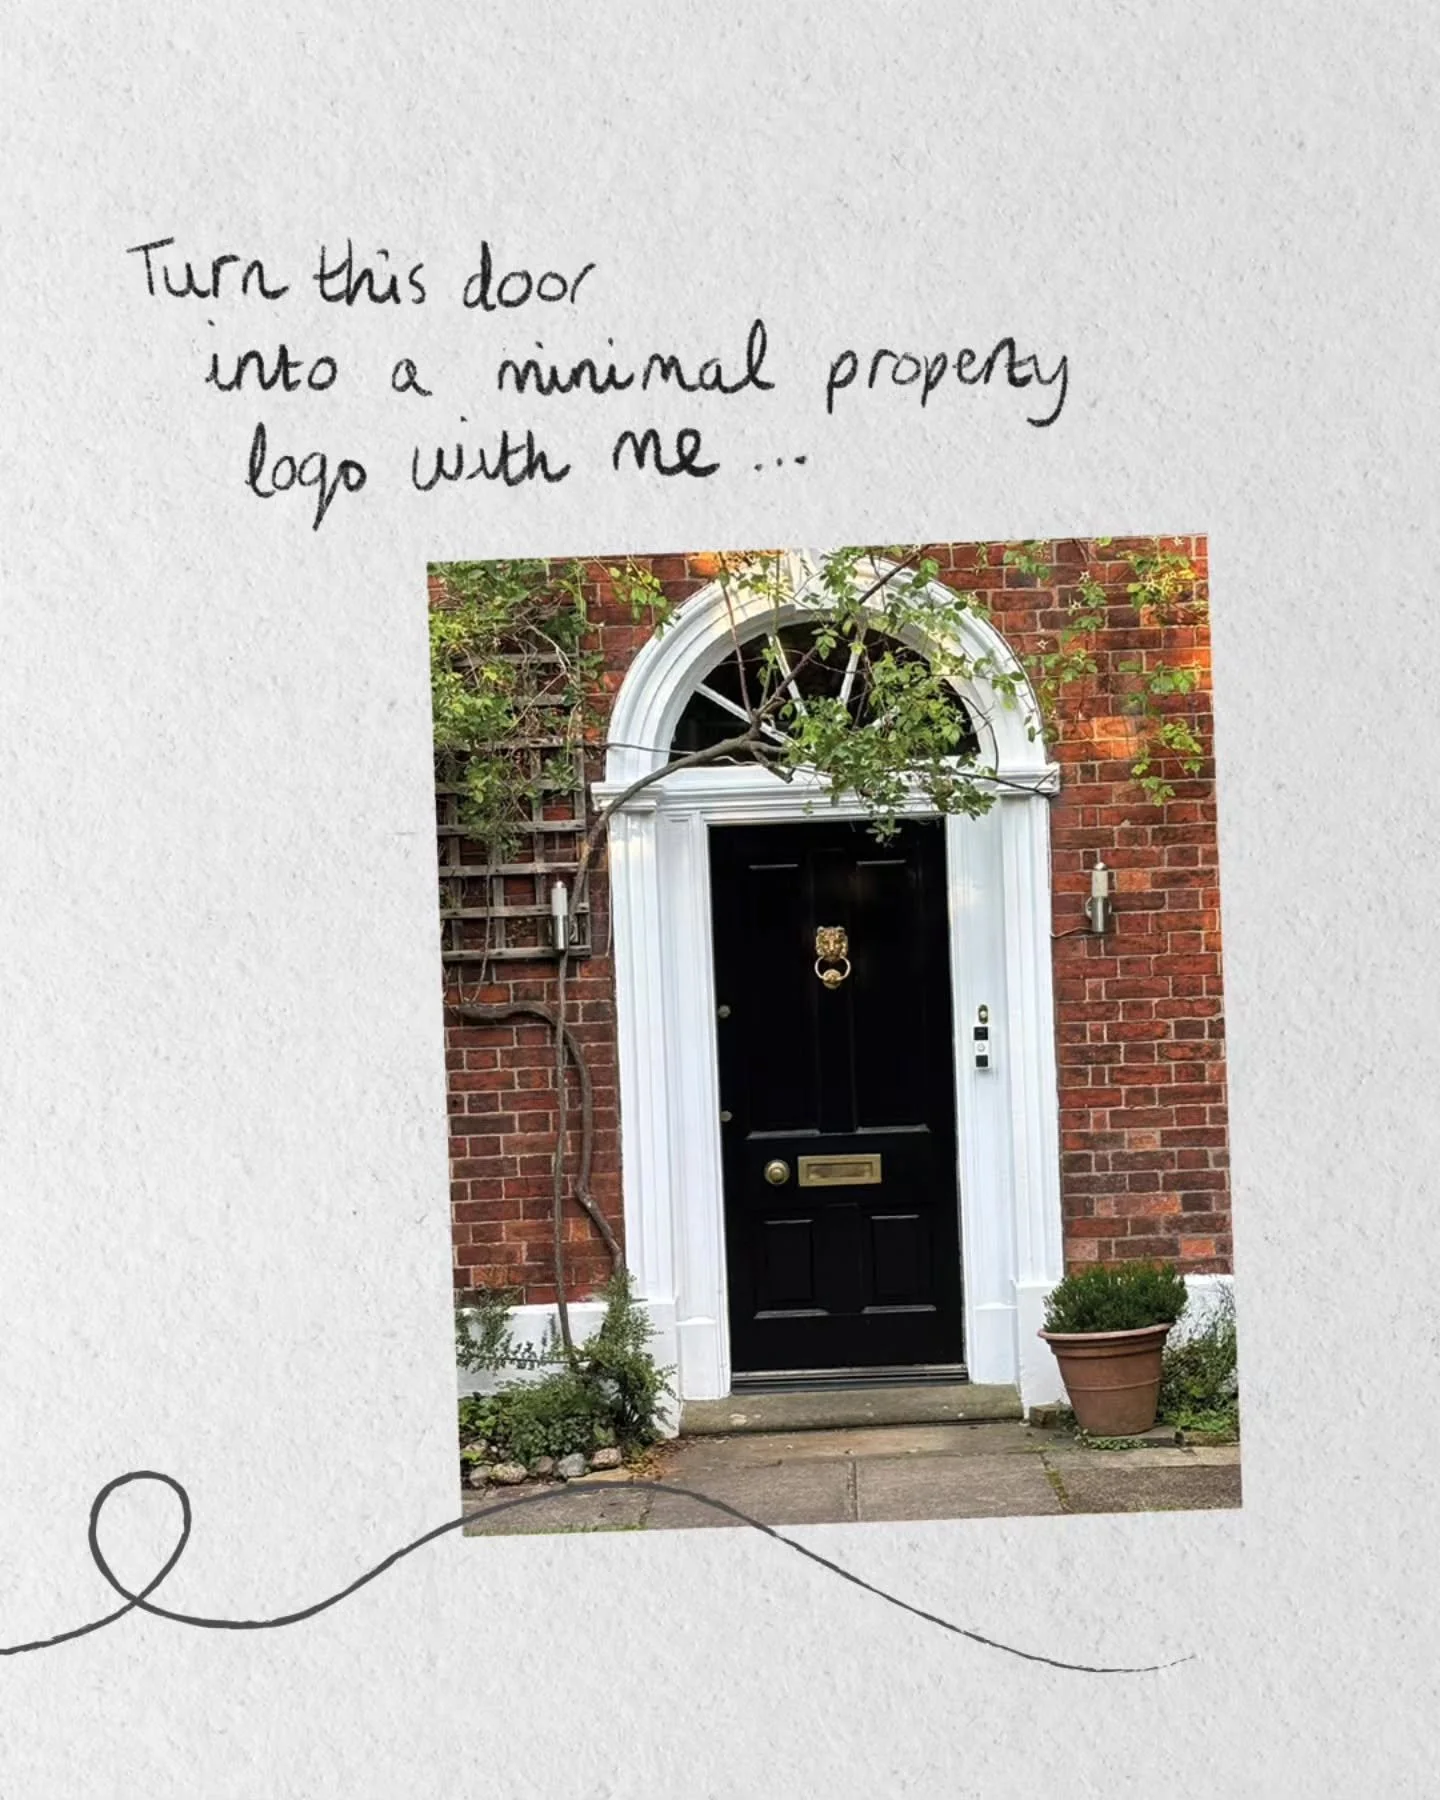 Turn this door
into a minimal property
logo with me...